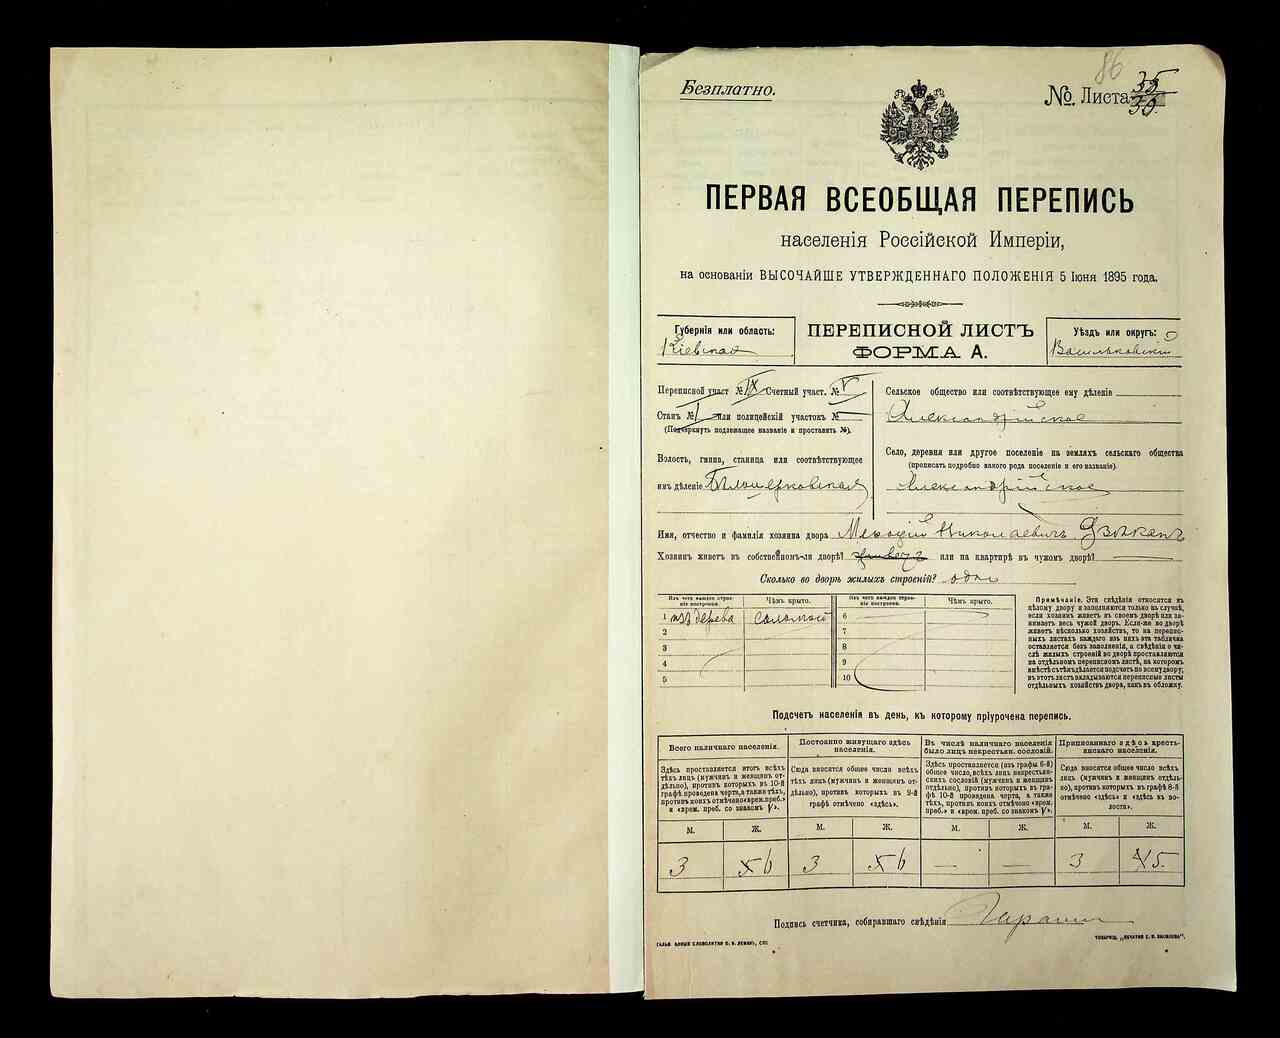 86
Безплатно.
№. Листа 35
ПЕРВАЯ ВСЕОБЩАЯ ПЕРЕПИСЬ
населенія Россійской Имперіи,
на основаніи ВЫСОЧАЙШЕ УТВЕРЖДЕННАГО ПОЛОЖЕНІЯ 5 Іюня 1895 года.
Губернія или область:
Кіевская
ПЕРЕПИСНОЙ ЛИСТЪ
ФОРМА А.
Уѣздъ или округъ:
Васильковскій
Переписной участ № IX Счетный участ. № V
Станъ № 1 или полицейскій участокъ №
(Подчеркнуть подлежащее названіе и проставить №).
Волость, гмина, станица или соотвѣтствующее
имъ дѣленіе Бѣлоцерковская
Сельское общество или соотвѣтствующее ему дѣленіе
Александрійское
Село, деревня или другое поселеніе на земляхъ сельскаго общества
(прописать подробно какого рода поселеніе и его названіе).
Александрійское
Имя, отчество и фамилія хозяина двора Мефодій Николаевичъ
Хозяинъ живетъ въ собственномъ-ли дворѣ? или на квартирѣ въ чужомъ дворѣ?
Сколько во дворѣ жилыхъ строеній? одно
Изъ чего каждое строеніе построено.
Чѣмъ крыто.
Изъ чего каждое строеніе построено.
Чѣмъ крыто.
1 изъ дерева соломой 6
2 7
3 8
4 9
5 10
Примѣчаніе. Эти свѣдѣнія относятся къ
цѣлому двору и заполняются только въ случаѣ,
если хозяинъ живетъ въ своемъ дворѣ или за-
нимаетъ весь чужой дворъ. Если-же во дворѣ
живетъ нѣсколько хозяйствъ, то на перепис-
ныхъ листахъ каждаго изъ нихъ эта табличка
оставляется безъ заполненія, а свѣдѣнія о чи-
слѣ жилыхъ строеній во дворѣ проставляются
на отдѣльномъ переписномъ листѣ, на которомъ
вмѣстѣ съ тѣмъ дѣлается подсчетъ по всему двору;
въ этотъ листъ вкладываются переписные листы
отдѣльныхъ хозяйствъ двора, какъ въ обложку.
Подсчетъ населенія въ день, къ которому пріурочена перепись.
Всего наличнаго населенія.
Постоянно живущаго здѣсь
населенія.
Въ числѣ наличнаго населенія
было лицъ некрестьян. сословій.
Приписаннаго здѣсь кресть-
янскаго населенія.
Здѣсь проставляется итогъ всѣхъ
тѣхъ лицъ (мужчинъ и женщинъ от-
дѣльно), противъ которыхъ въ 10-й
графѣ проведена черта, а также тѣхъ,
противъ коихъ отмѣчено «врем. преб.»
и «врем. преб. со знакомъ V».
Сюда вносится общее число всѣхъ
тѣхъ лицъ (мужчинъ и женщинъ от-
дѣльно), противъ которыхъ въ 9-й
графѣ отмѣчено «здѣсь».
Здѣсь проставляется (изъ графы 6-й)
общее число, всѣхъ лицъ некрестьян-
скихъ сословій (мужчинъ и женщинъ
отдѣльно), противъ которыхъ въ гра-
фѣ 10-й проведена черта, а также
тѣхъ, противъ коихъ отмѣчено «врем.
преб.» и «врем. преб. со знакомъ V».
Сюда вносится общее число всѣхъ
лицъ (мужчинъ и женщинъ отдѣль-
но), противъ которыхъ въ графѣ 8-й
отмѣчено «здѣсь» и «здѣсь въ во-
лости».
М. Ж. М. Ж. М. Ж. М. Ж.
3 6 3 6 — — 3 5
Подпись счетчика, собиравшаго свѣдѣнія